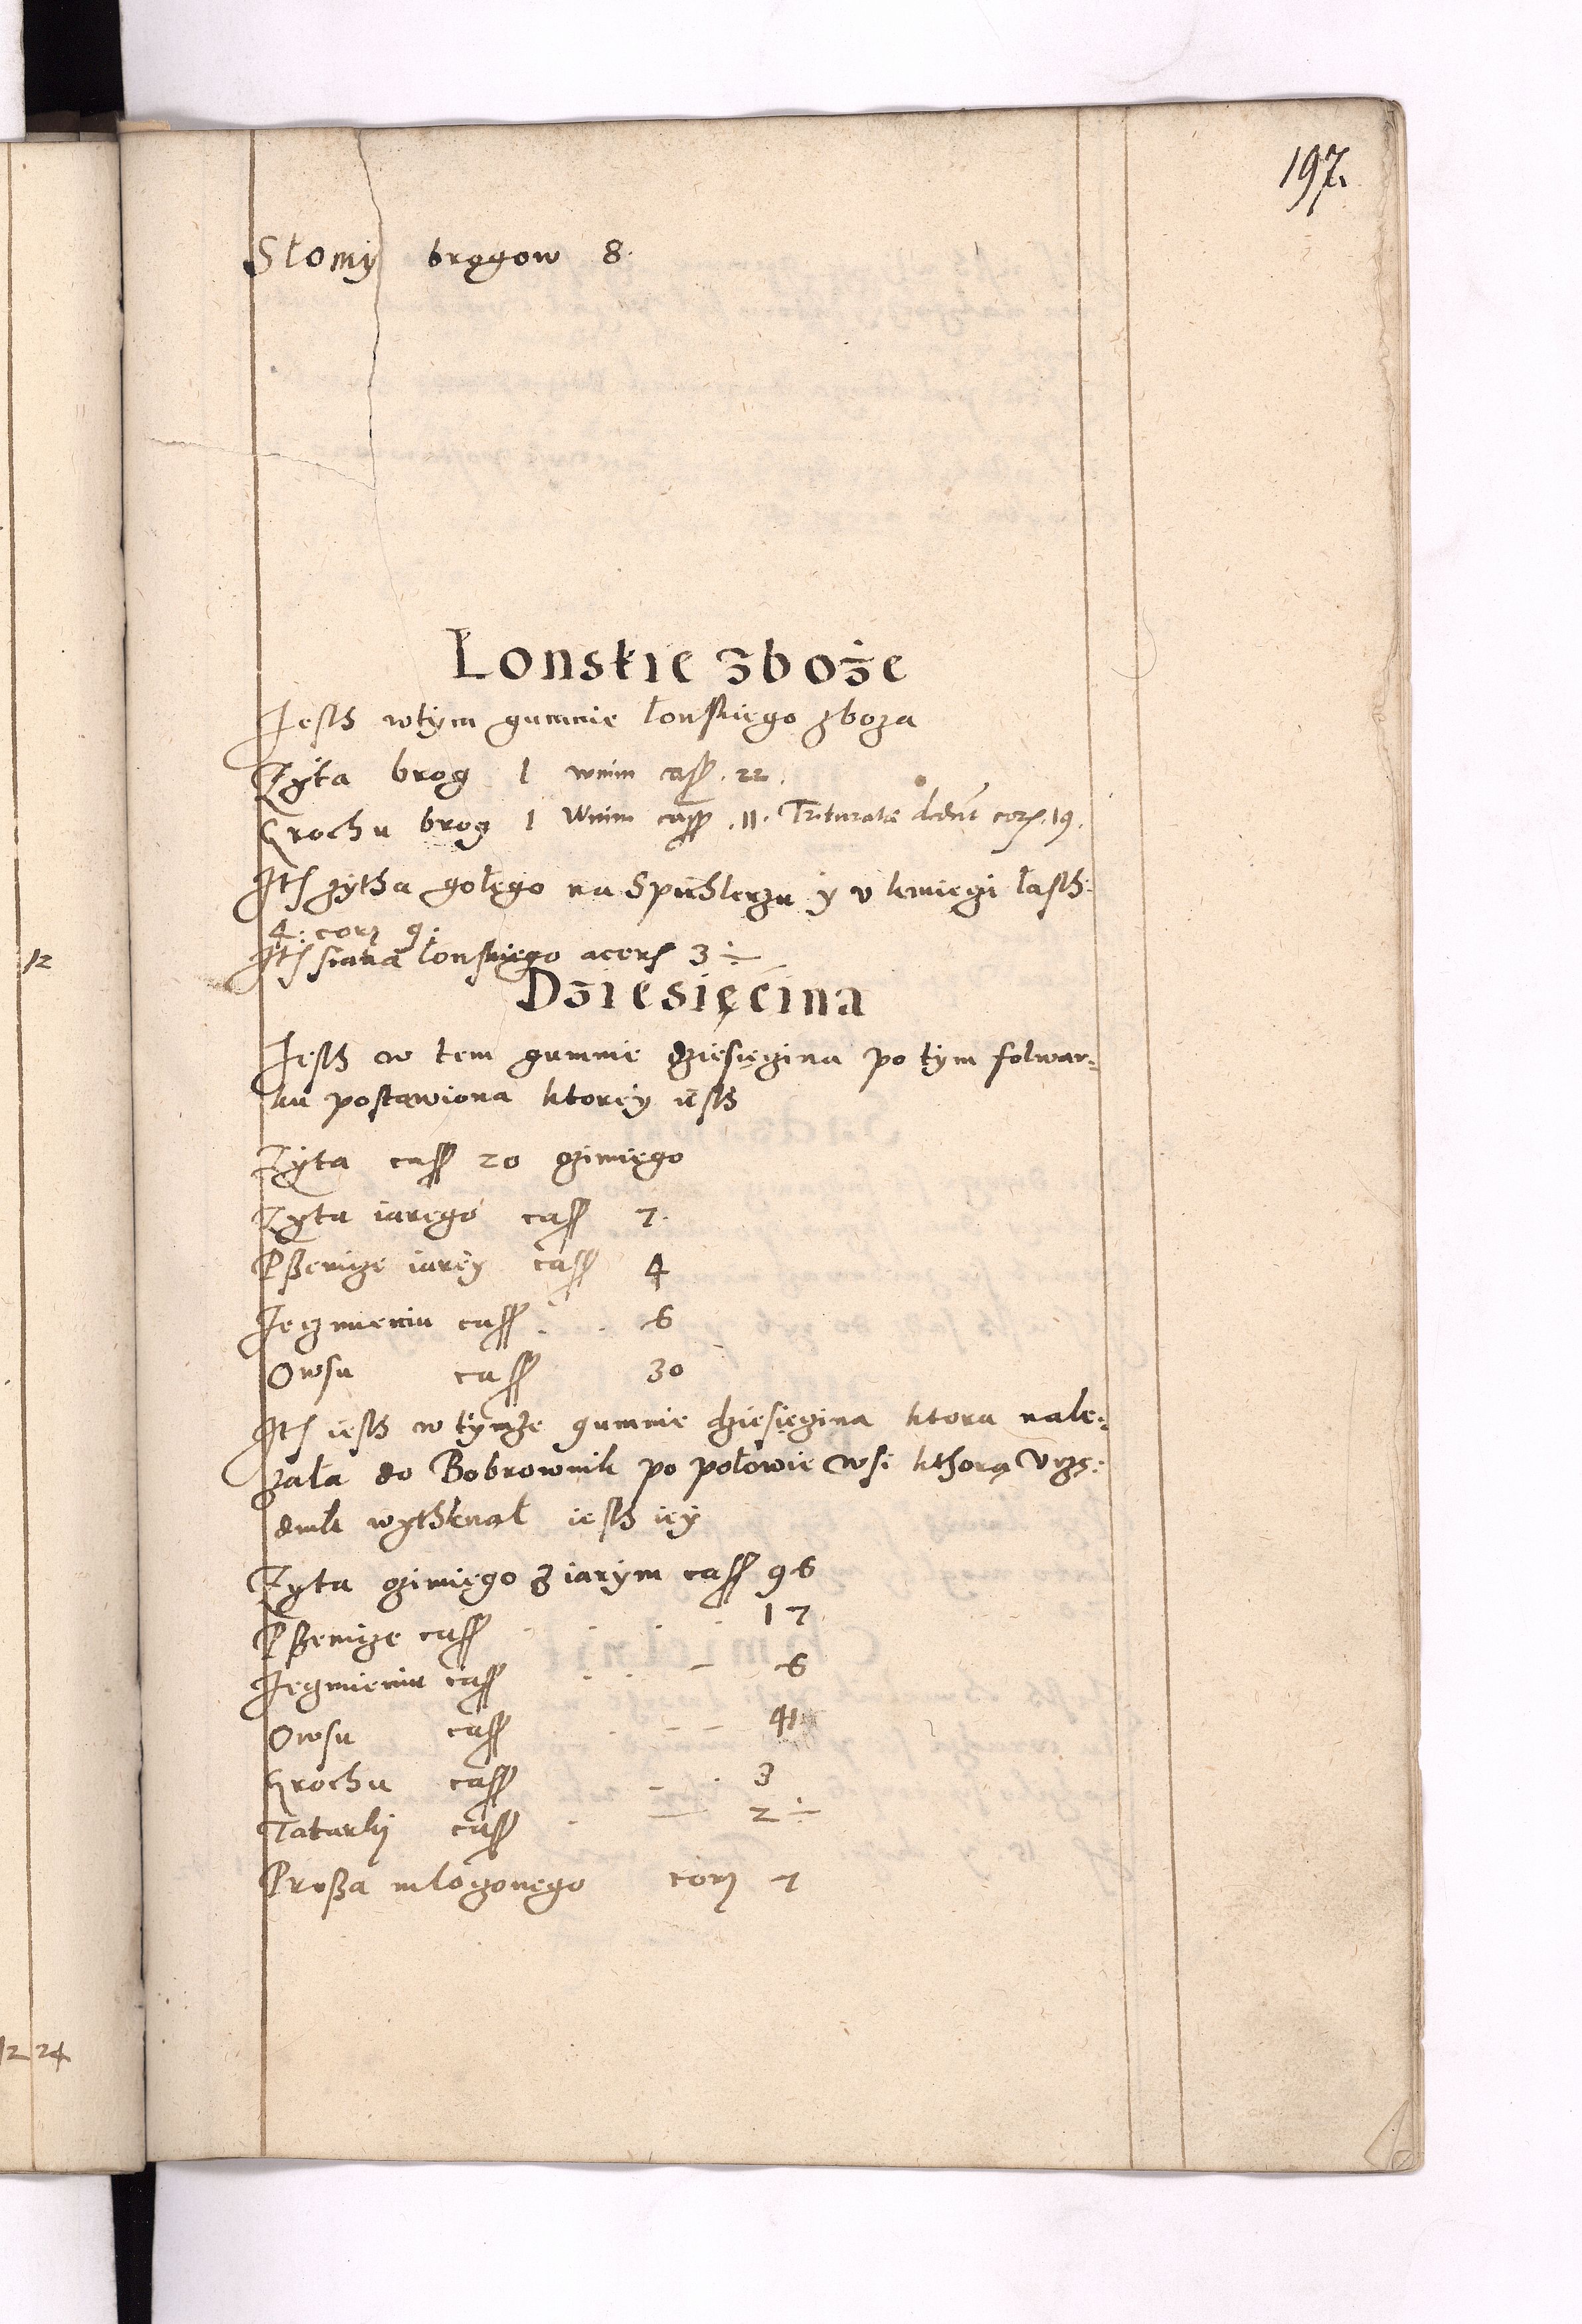 197.
Słomÿ brogow 8.
Łonskie zboże
Jesth wtym gumnie łonskiego zboza
Zÿta brog 1 wnim cass. 22.
Grochu brog 1 Wnim cass. 11. Triturata dederunt cor. 19.
Jt. zÿtha gołego na Spichlerzu ÿ v kmiegi łasth:
4: corz 9:
Jt. siana łonskiego acers 3 ÷
Dziesięcina
Jesth w tem gumnie dziesięgina po tÿm folwar:
ku postawiona ktorÿ iesth
Zÿta cass 20 ozimiego
Zÿta iarego cass 7.
Pszenize iarÿ cass 4
Jęczmieniu cass. 6
Owsu cass 30
Jt. iesth w tymże gumnie dziesięgina ktora nale:
zała do Bobrownik po połowie wsi kthorą Vrzę:
dnik wÿthknał iesth iey
Zÿta ozimiego z iarÿm cass 96
Pszenize cass 17
Jęczmieniu cass 6
Owsu cass 41
Grochu cass 3
Tatarkÿ cass 2 ÷
Prosza młozonego corz 7
12
12 24